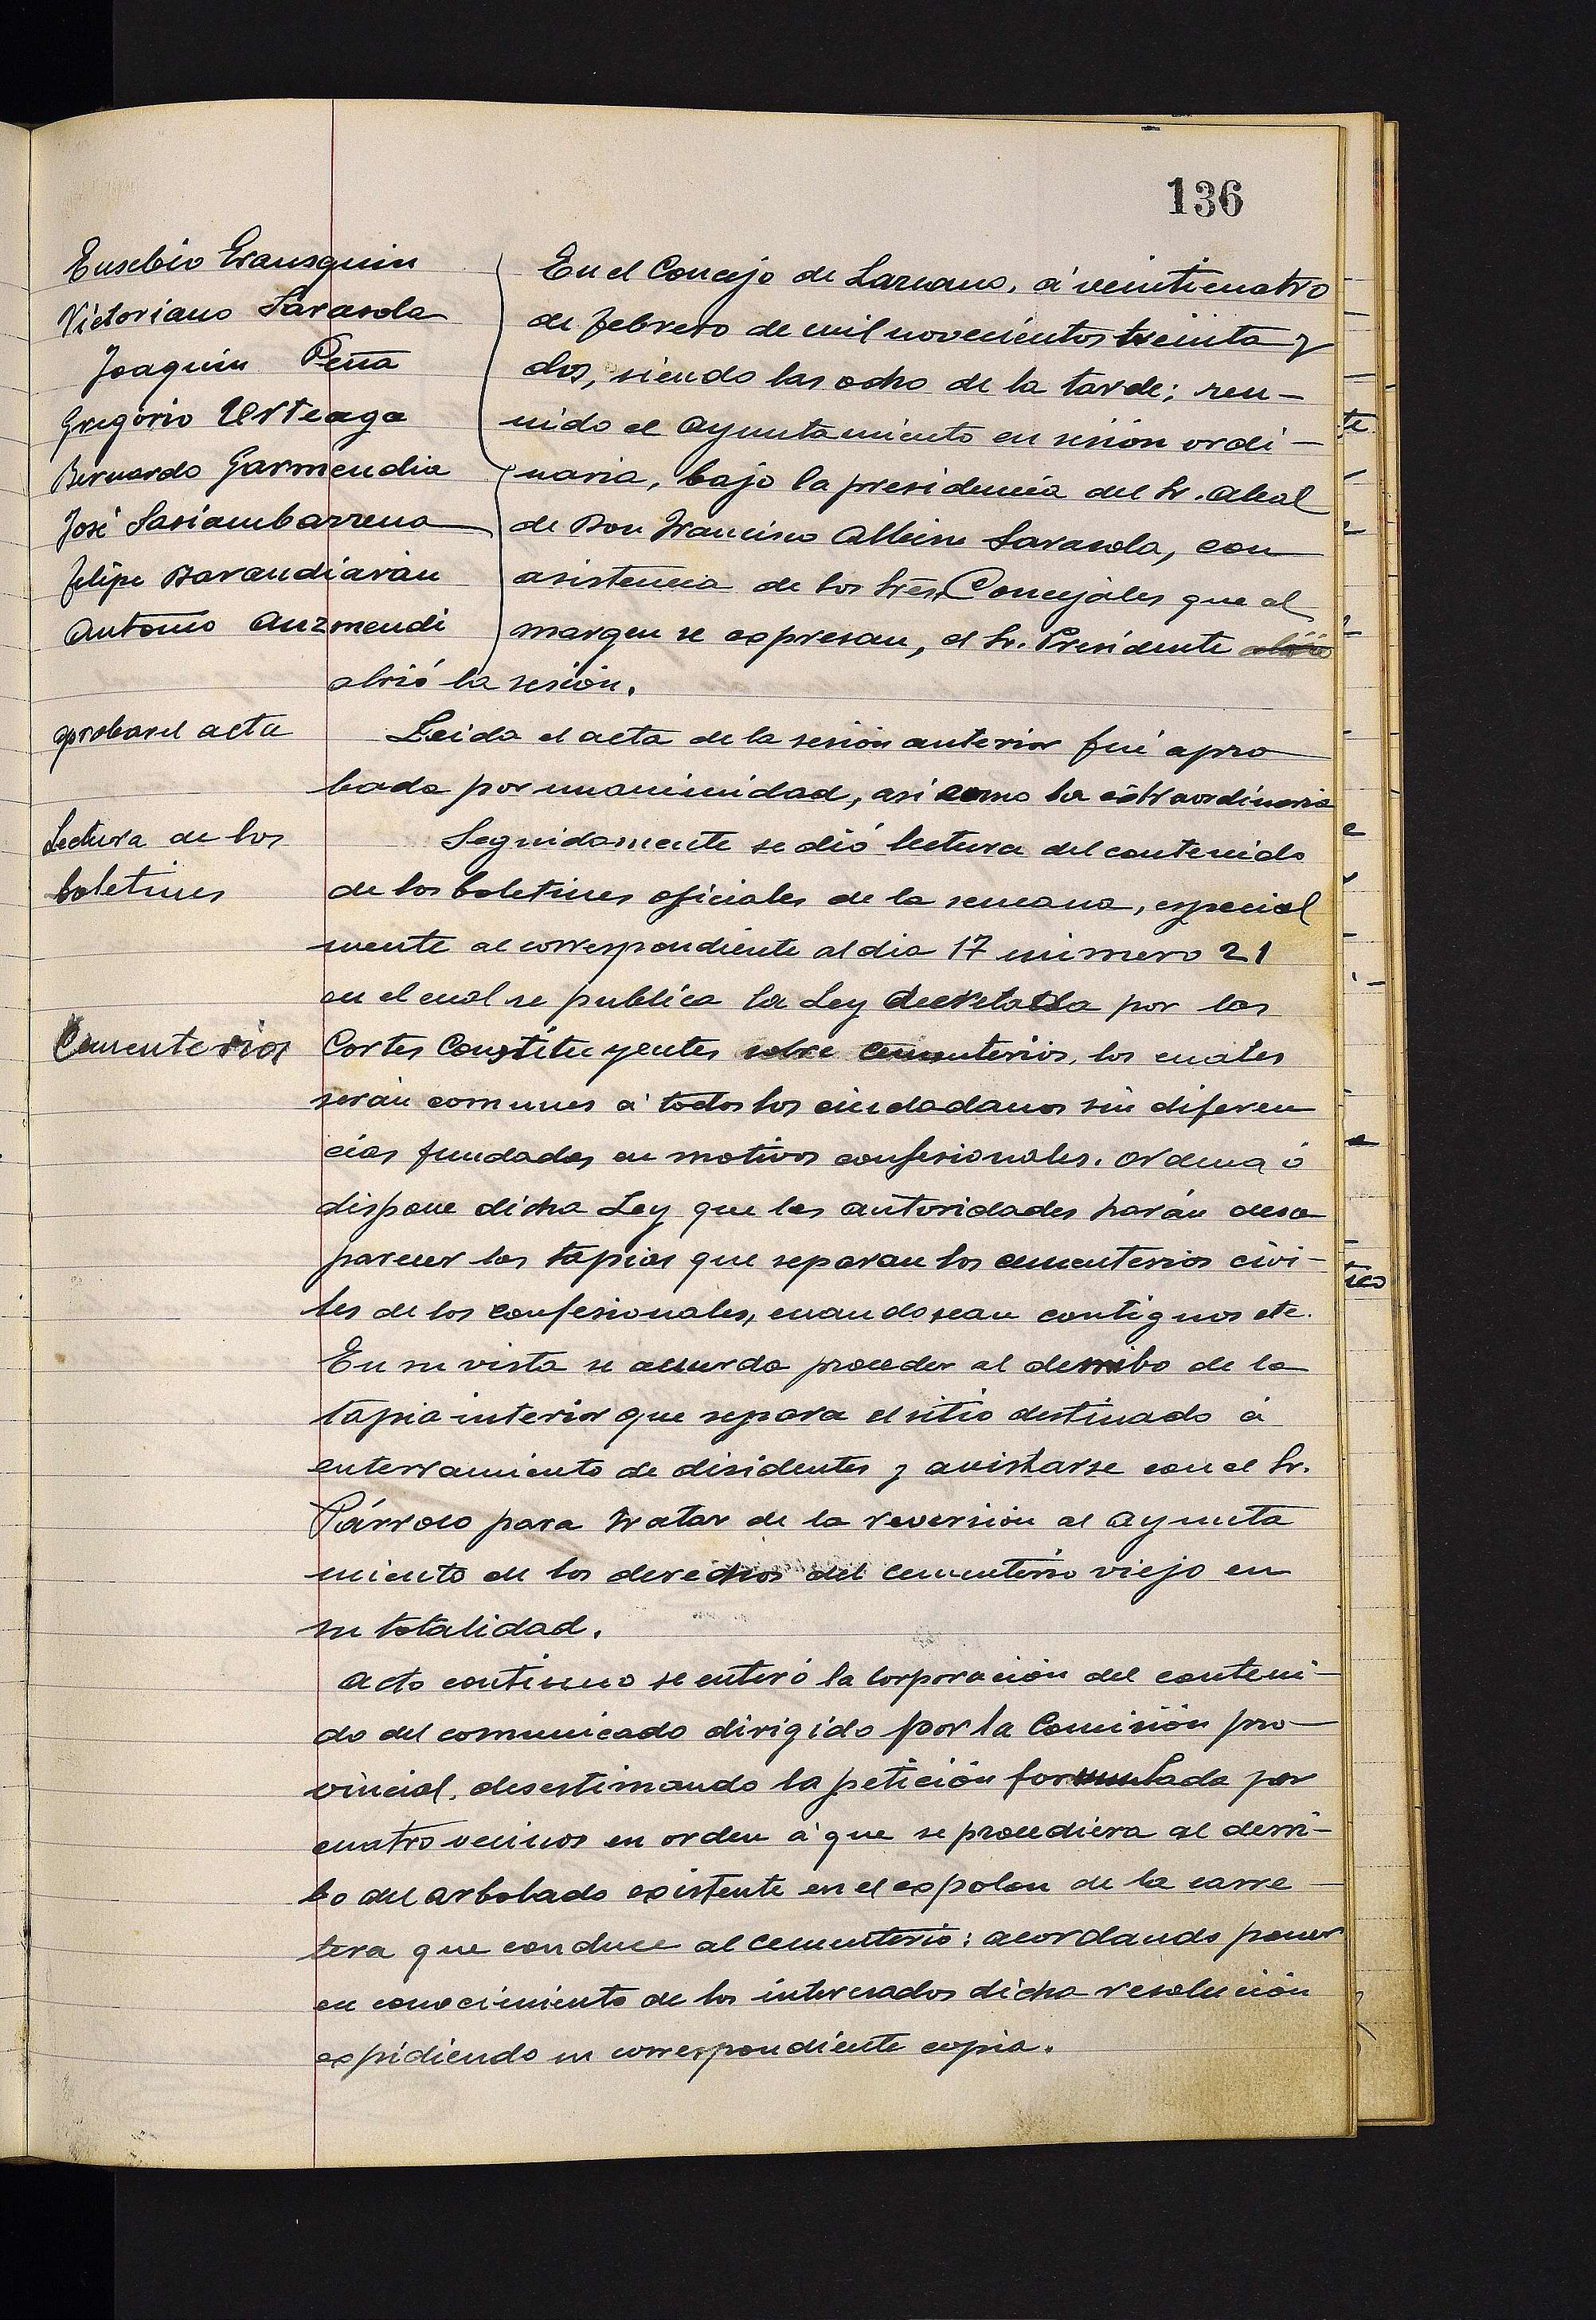 136
Eusebio Erausquin
Victoriano Sarasola
Joaquin Peña
Gregorio Urteaga
Bernardo Garmendia
José Sasiambarrena
Felipe Barandiarán
Antonio Auzmendi
En el Concejo de Lazcano, á veinticuatro
de febrero de mil novecientos treinta y
dos, siendo las ocho de la tarde; reu-
nido el Ayuntamiento en sesión ordi-
naria, bajo la presidencia del Sr. Alcal
de Don Francisco Albisu Sarasola, con
asistencia de los Sres. Concejales que al
margen se expresan, el Sr. Presidente
abrió la sesión.
aprobar el acta
Leida el acta de la sesión anterior fué apro
bada por unanimidad, asi como la extraordinaria
Lectura de los
boletines
Seguidamente se dió lectura del contenido
de los boletines oficiales de la semana, especial
mente al correspondiente al dia 17 número 21
en el cual se publica la Ley decretada por las
Cementerios
Cortes Constituyentes sobre cementerios, los cuales
serán comunes á todos los ciudadanos sin diferen
cias fundadas en motivos confesionales. Ordena ó
dispone dicha Ley que las autoridades harán desa
parecer las tapias que separan los cementerios civi-
les de los confesionales, cuando sean contiguos etc.
En su vista se acuerda proceder al derribo de la
tapia interior que separa el sitio destinado á
enterramiento de disidentes y avistarse con el Sr.
Párroco para tratar de la reversión al Ayunta
miento de los derechos del cementerio viejo en
su totalidad.
Acto continuo se enteró la Corporación del conteni-
do del comunicado dirigido por la Comisión pro-
vincial, desestimando la petición formulada por
cuatro vecinos en orden á que se procediera al derri-
bo del arbolado existente en el expolon de la carre-
tera que conduce al cementerio: acordando poner
en conocimiento de los interesados dicha resolución
expidiendo su correspondiente copia.